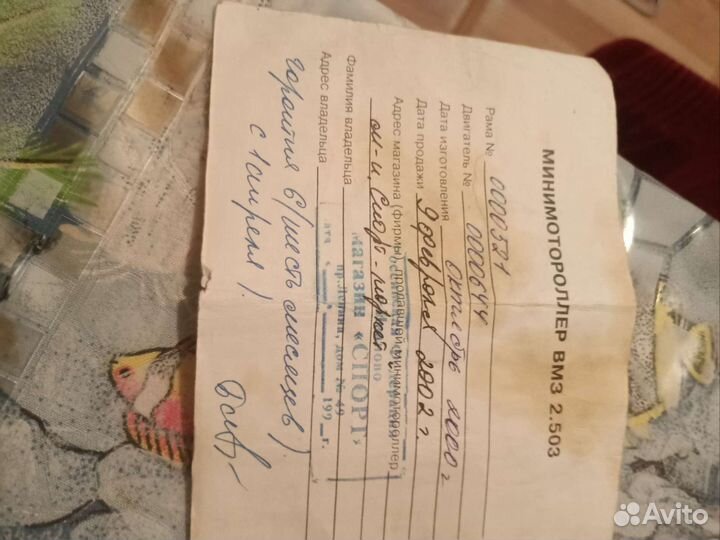 МИНИМОТОРОЛЛЕР ВМЗ 2.503
Рама № 0000521
Двигатель № 0000644
Дата изготовления октябрь 2000 г
Дата продажи 9 февраля 2002 г.
Адрес магазина (фирмы), продавшей минимотороллер
м-н Спорт-
Российская Федерация
магазин «СПОРТ»
пр. Ленина, дом № 49
199 г.
Фамилия владельца
Адрес владельца
гарантия 6/шесть месяцев).
с 1 апреля).
Avito